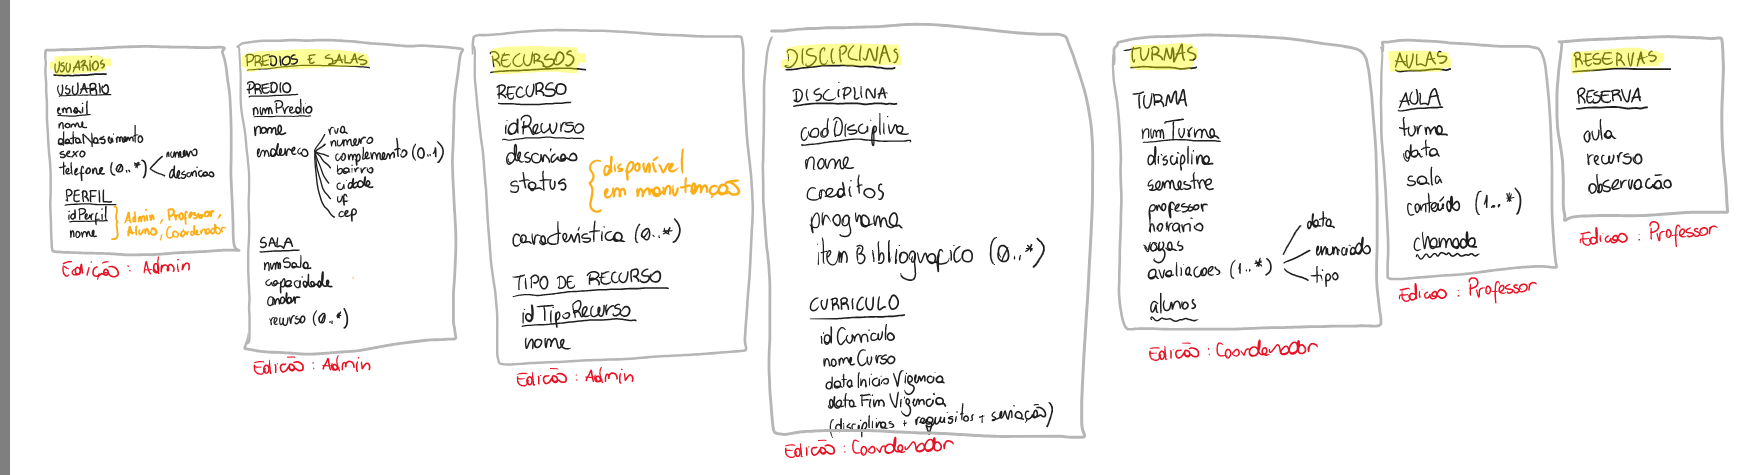 USUÁRIOS
USUARIO
email
nome
dataNascimento
sexo
telefone (0..*)
numero
descricao
PERFIL
idPerfil
nome
Admin, Professor,
Aluno, Coordenador
Edição: Admin
PREDIOS E SALAS
PREDIO
numPredio
nome
endereco
rua
numero
complemento (0..1)
bairro
cidade
uf
cep
SALA
numSala
capacidade
andar
recurso (0..*)
Edicão: Admin
RECURSOS
RECURSO
idRecurso
descricao
status
disponível
em manutenção
característica (0..*)
TIPO DE RECURSO
idTipoRecurso
nome
Edicão: Admin
DISCIPLINAS
DISCIPLINA
codDisciplina
nome
creditos
programa
itemBibliografico (0..*)
CURRICULO
idCurriculo
nomeCurso
dataInicioVigencia
dataFimVigencia
(disciplinas + requisitos + seriação)
Edicão: Coordenador
TURMAS
TURMA
numTurma
disciplina
semestre
professor
horario
vagas
avaliacoes (1..*)
data
enunciado
tipo
alunos
Edicão: Coordenador
AULAS
AULA
turma
data
sala
conteúdo (1..*)
chamada
Edicao: Professor
RESERVAS
RESERVA
aula
recurso
observacão
Edicao: Professor